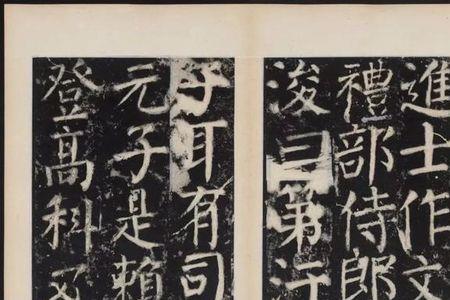 進士作文
禮部侍郎
浚曰一第汙
子耳有司
元子是賴
登高科